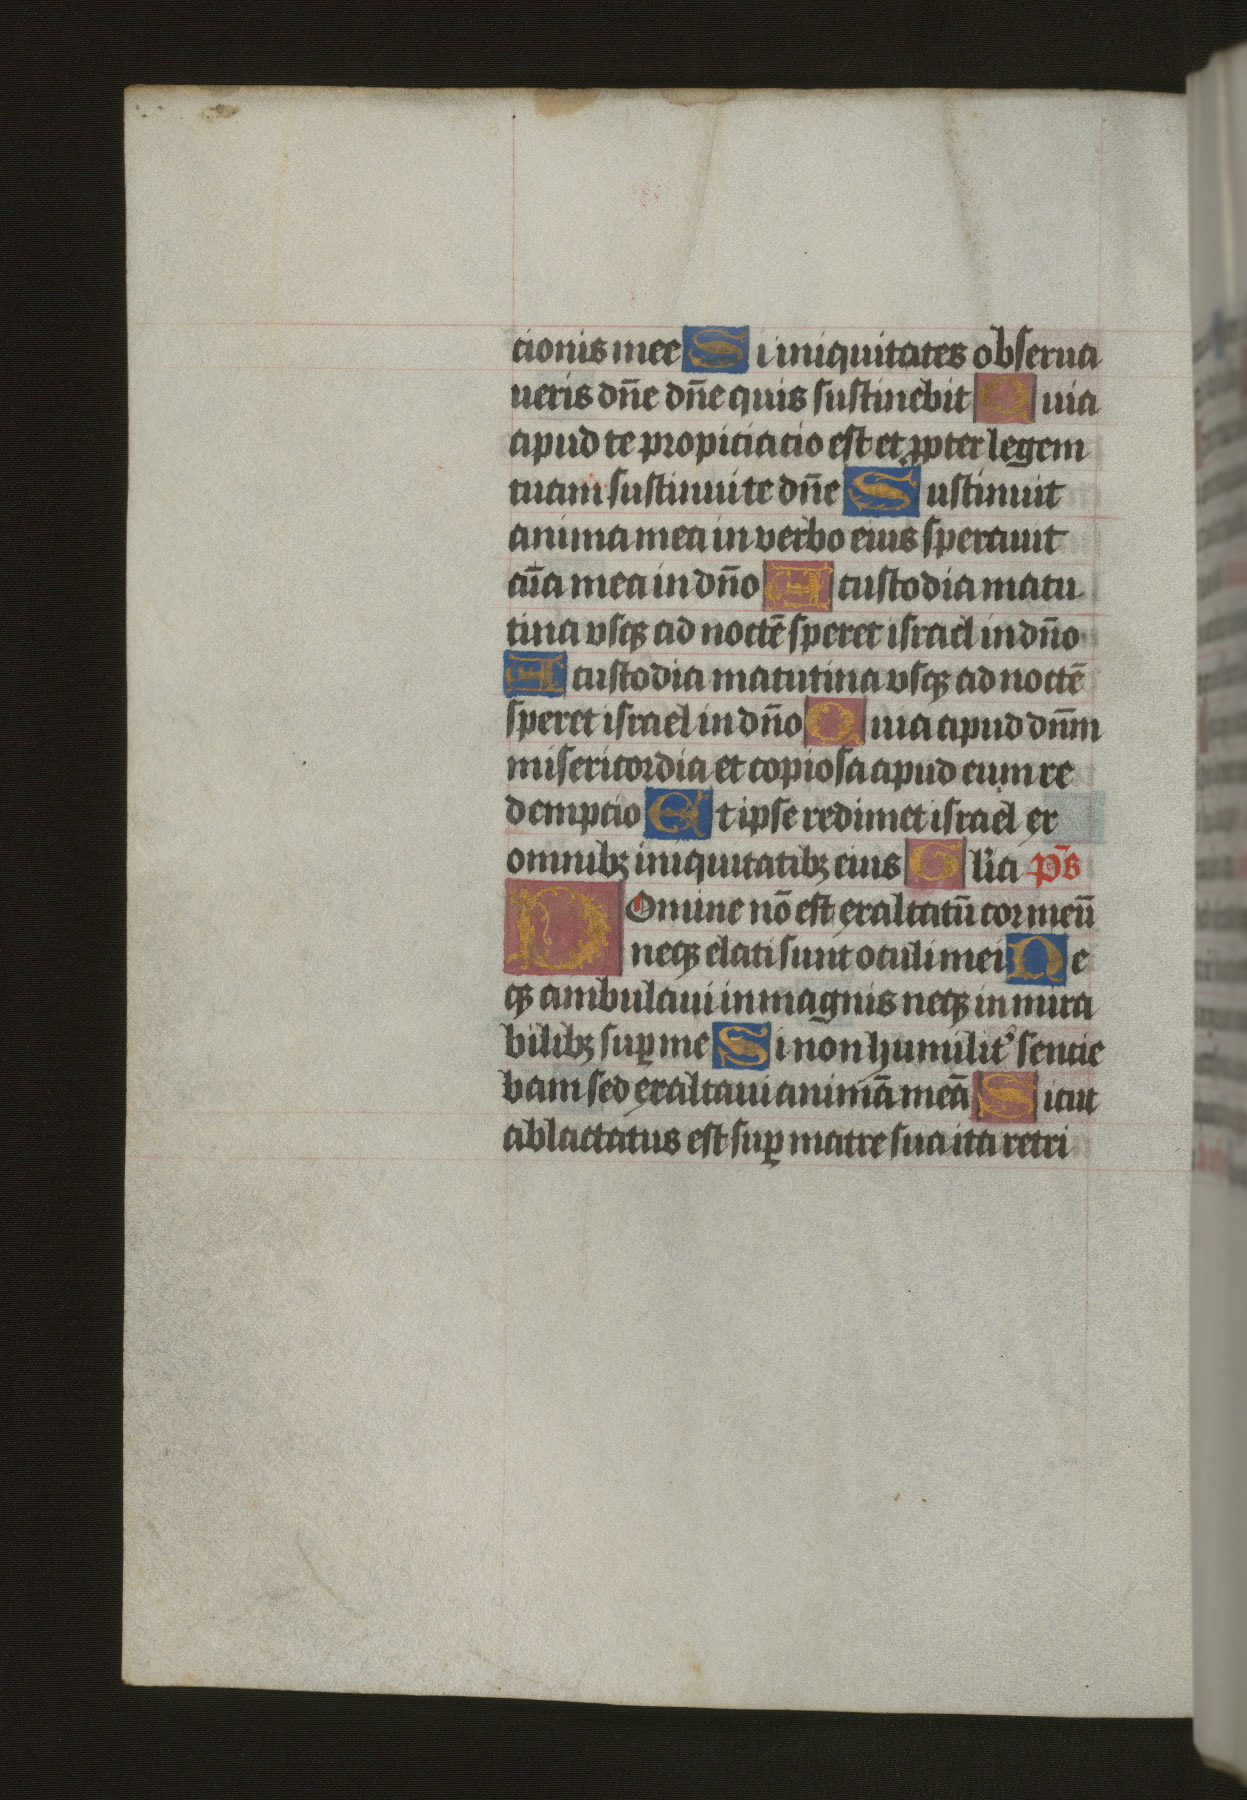 cionis mee Si iniquitates obserua
ueris dn̄e dn̄e quis sustinebit Quia
apud te propiciacio est et ꝓpter legem
tuam sustinui te dn̄e Sustinuit
anima mea in verbo eius sperauit
aīa mea in dn̄o A custodia matu
tina vsqꝫ ad noctē speret israel in dn̄o
A custodia matutina vsqꝫ ad noctē
speret israel in dn̄o Quia apud dn̄m
misericordia et copiosa apud eum re
dempcio Et ipse redimet israel ex
omnibꝫ iniquitatibꝫ eius Glīa p̄s
Domine nō est exaltatū cor meū
neqꝫ elati sunt oculi mei Ne
qꝫ ambulaui in magnis neqꝫ in mira
bilibꝫ suꝑ me Si non humilit᷎ sencie
bam sed exaltaui animā meā Sicut
ablactatus est suꝑ matre sua ita retri